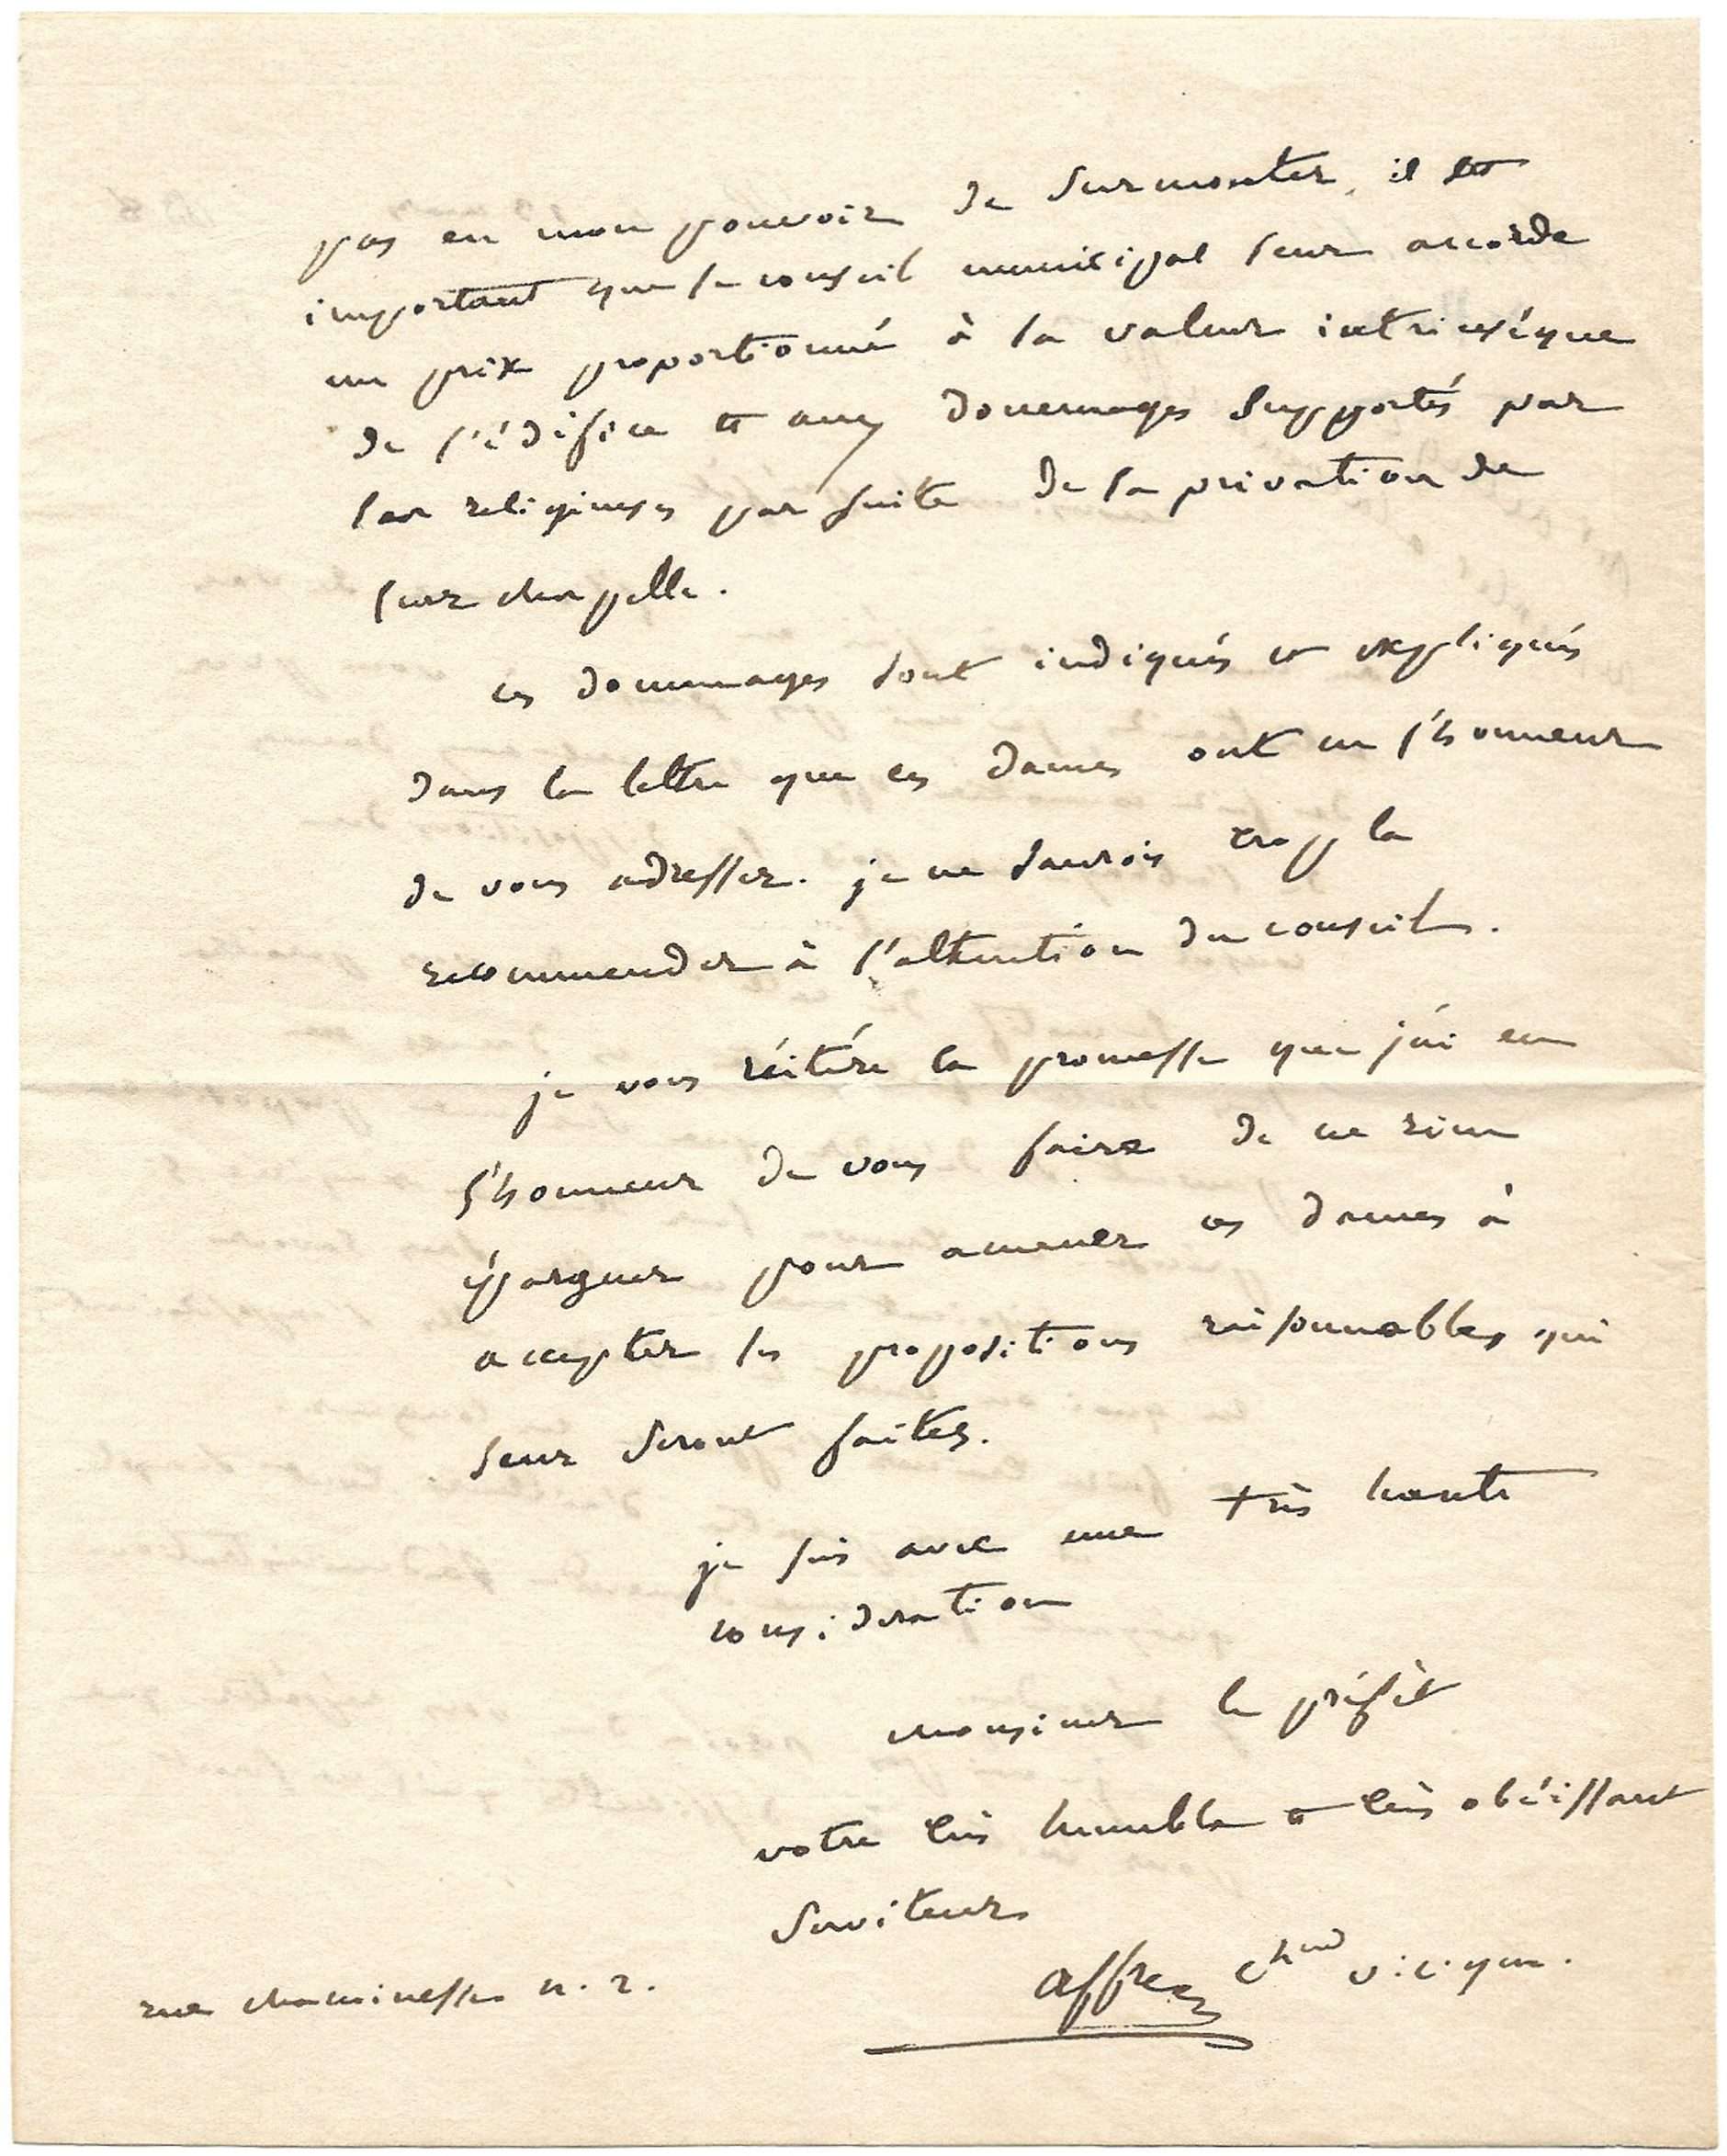 pas en mon pouvoir de surmonter, il est
important que le conseil municipal leur accorde
un prix proportionné à la valeur intrinsèque
de l'édifice et aux dommages supportés par
les religieuses par suite de la privation de
leur chapelle.
ces dommages sont indiqués et expliqués
dans la lettre que ces dames ont eu l'honneur
de vous adresser. je ne saurois trop la
recommander à l'attention du conseil.
je vous réitère la promesse que j'ai eu
l'honneur de vous faire de ne rien
épargner pour amener ces dames à
accepter les propositions raisonnables qui
leur seront faites.
je suis avec une très haute
considération
monsieur le préfet
votre très humble et très obéissant
serviteur
affre
v. c. g.
rue chanoinesse n. 2.